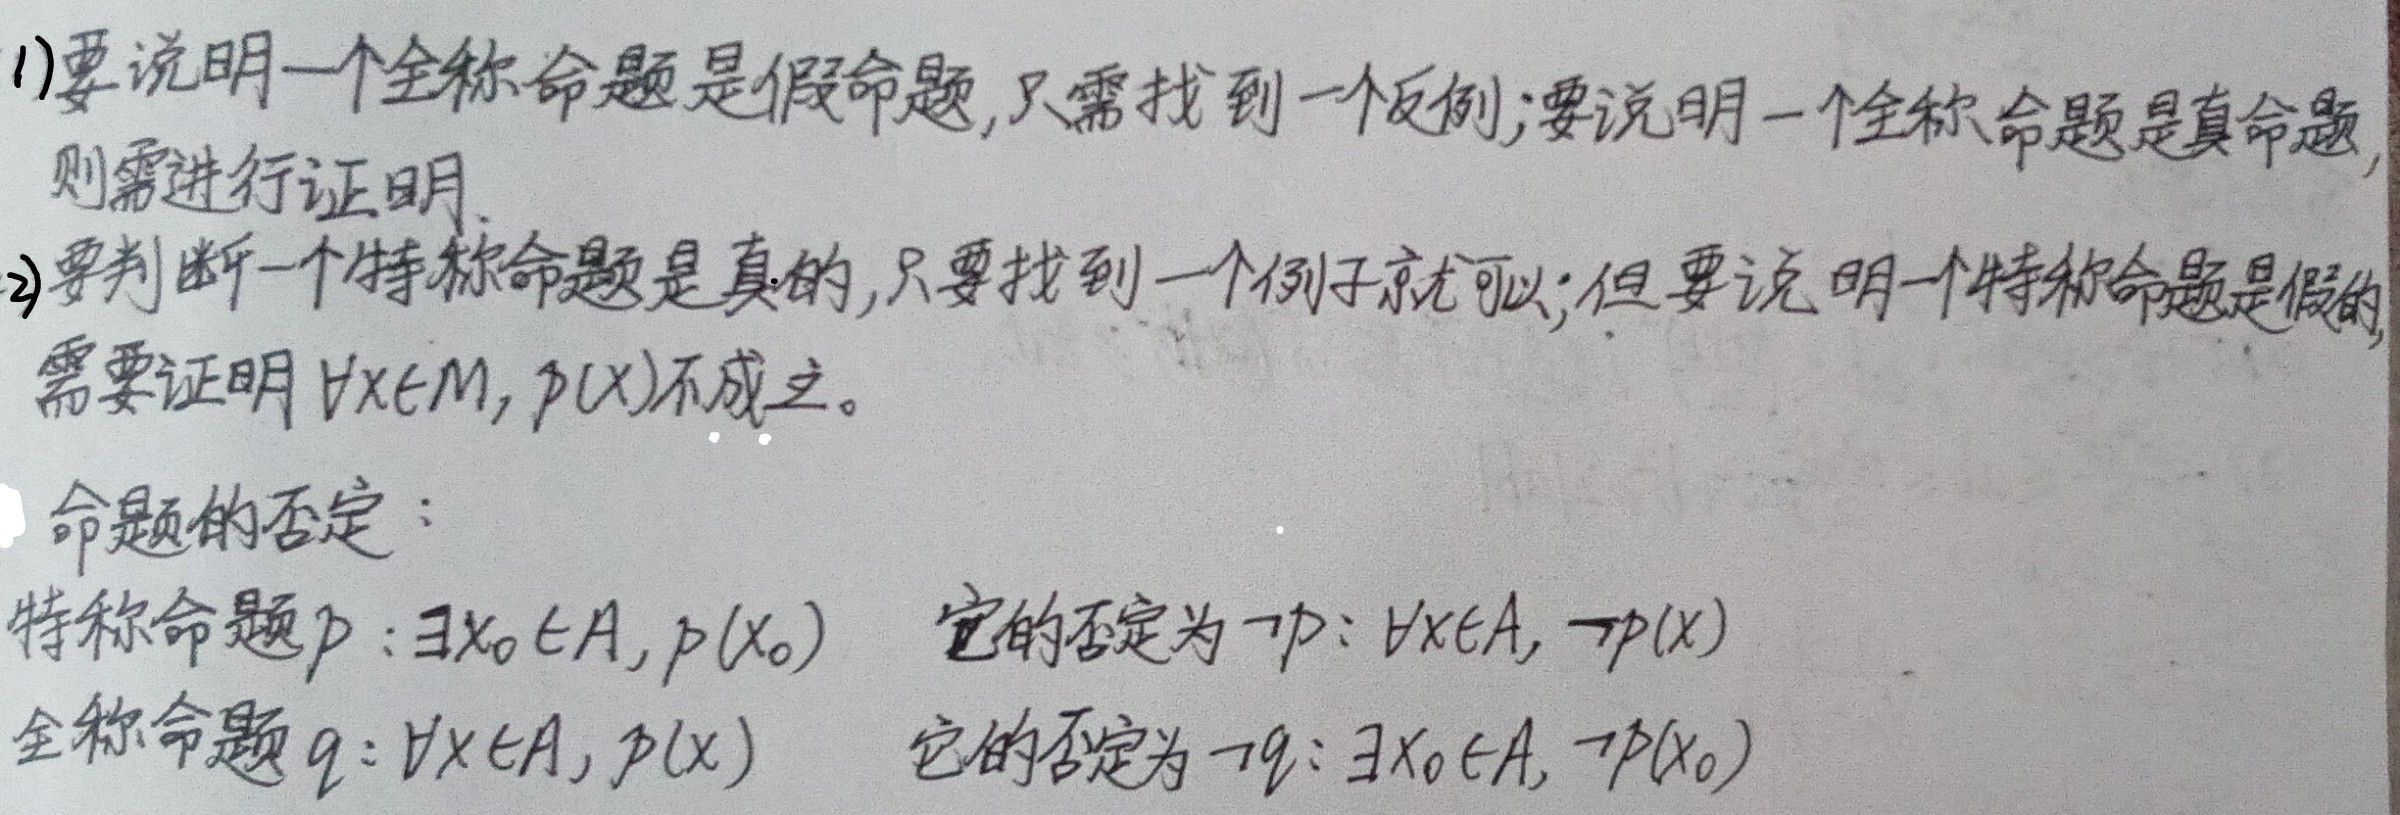 1)要说明一个全称命题是假命题,只需找到一个反例;要说明一个全称命题是真命题,
则需进行证明.
2)要判断一个特称命题是真的,只要找到一个例子就可以;但要说明一个特称命题是假的,
需要证明∀x∈M, p(x)不成立。
命题的否定:
特称命题p:∃x₀∈A, p(x₀) 它的否定为¬p:∀x∈A, ¬p(x)
全称命题q:∀x∈A, p(x) 它的否定为¬q:∃x₀∈A, ¬p(x₀)